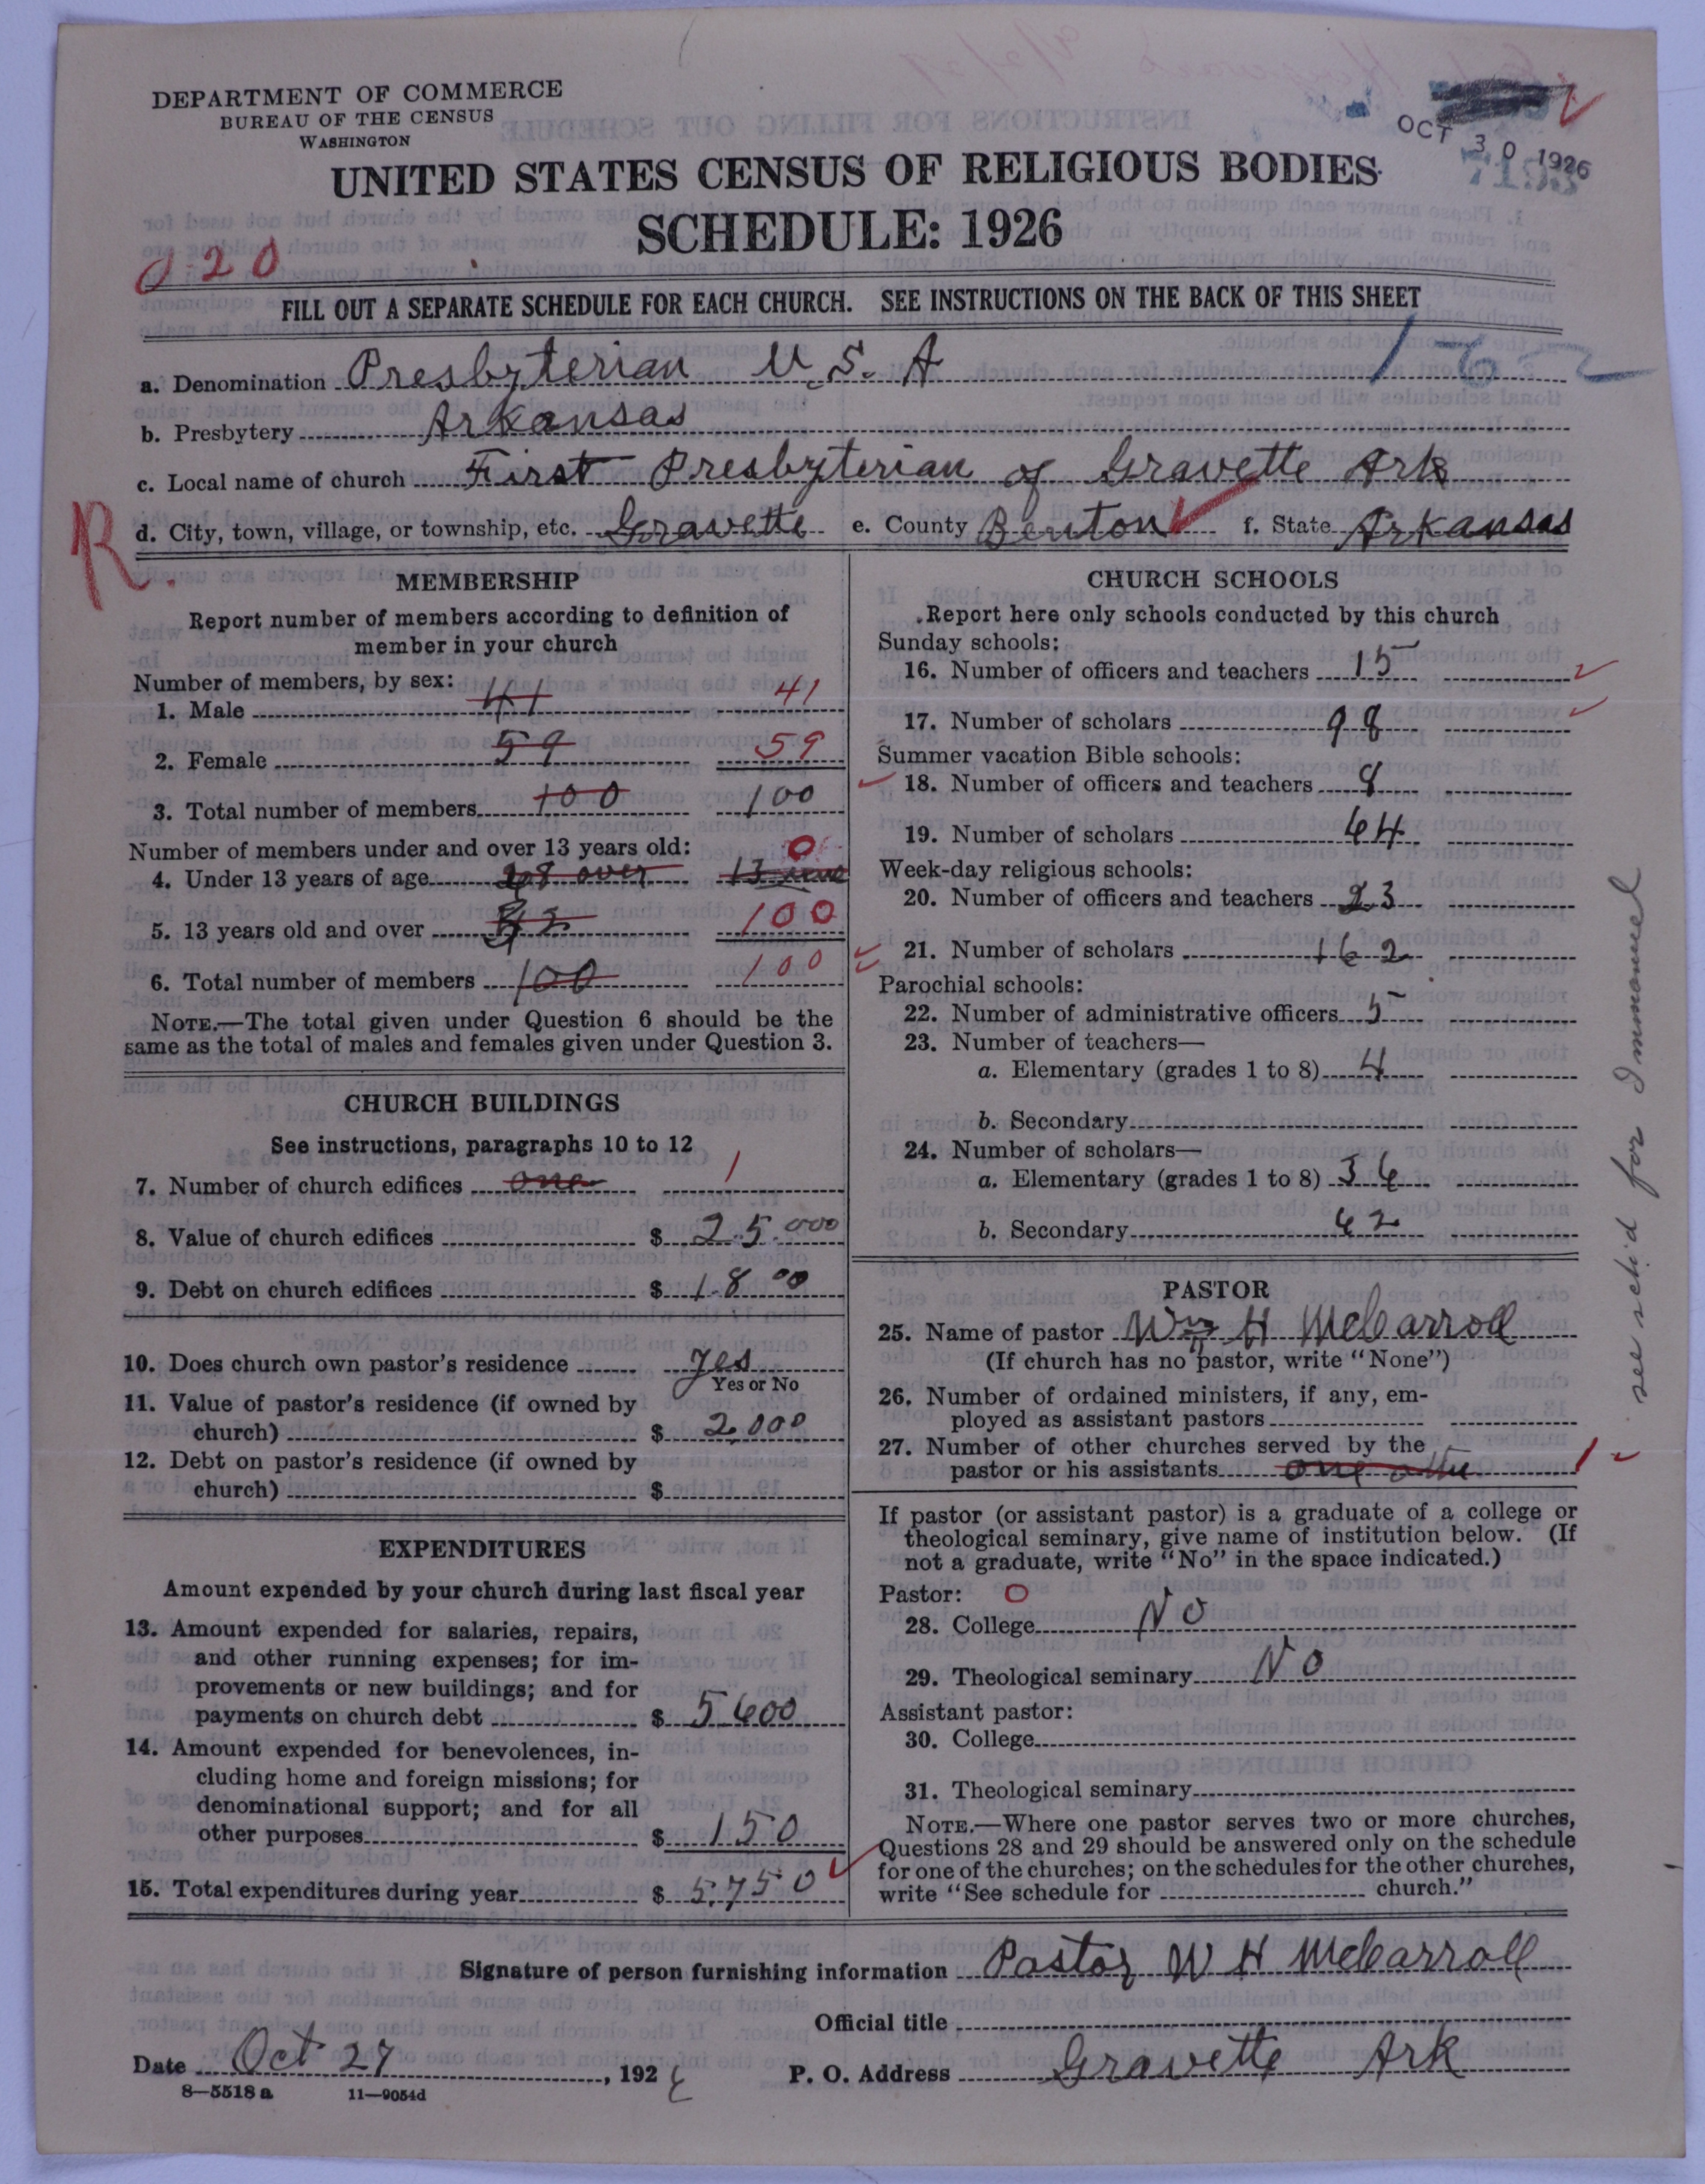 DEPARTMENT OF COMMERCE
BUREAU OF THE CENSUS
WASHINGTON
OCT 30 1926
7193
UNITED STATES CENSUS OF RELIGIOUS BODIES
SCHEDULE: 1926
0-20
FILL OUT A SEPARATE SCHEDULE FOR EACH CHURCH. SEE INSTRUCTIONS ON THE BACK OF THIS SHEET
a. Denomination Presbyterian U.S.A
b. Presbytery Arkansas
c. Local name of church First Presbyterian of Gravette Ark
R. d. City, town, village, or township, etc. Gravette e. County Benton f. State Arkansas
MEMBERSHIP
Report number of members according to definition of
member in your church
Number of members, by sex:
1. Male 41 41
2. Female 59 59
3. Total number of members 100 100
Number of members under and over 13 years old:
4. Under 13 years of age 0
5. 13 years old and over 100
6. Total number of members 100 100
NOTE.—The total given under Question 6 should be the
same as the total of males and females given under Question 3.
CHURCH BUILDINGS
See instructions, paragraphs 10 to 12
7. Number of church edifices one 1
8. Value of church edifices $ 25.000
9. Debt on church edifices $ 18 00
10. Does church own pastor's residence yes
Yes or No
11. Value of pastor's residence (if owned by
church) $ 2,000
12. Debt on pastor's residence (if owned by
church) $
EXPENDITURES
Amount expended by your church during last fiscal year
13. Amount expended for salaries, repairs,
and other running expenses; for im-
provements or new buildings; and for
payments on church debt $ 5600
14. Amount expended for benevolences, in-
cluding home and foreign missions; for
denominational support; and for all
other purposes $ 150
15. Total expenditures during year $ 5,750
CHURCH SCHOOLS
Report here only schools conducted by this church
Sunday schools:
16. Number of officers and teachers 15
17. Number of scholars 98
Summer vacation Bible schools:
18. Number of officers and teachers 8
19. Number of scholars 64
Week-day religious schools:
20. Number of officers and teachers 23
21. Number of scholars 162
Parochial schools:
22. Number of administrative officers 5
23. Number of teachers—
a. Elementary (grades 1 to 8) 4
b. Secondary
24. Number of scholars—
a. Elementary (grades 1 to 8) 36
b. Secondary 62
PASTOR
25. Name of pastor Wm H McCarroll
(If church has no pastor, write "None")
26. Number of ordained ministers, if any, em-
ployed as assistant pastors
27. Number of other churches served by the
pastor or his assistants one 1
If pastor (or assistant pastor) is a graduate of a college or
theological seminary, give name of institution below. (If
not a graduate, write "No" in the space indicated.)
Pastor: 0
28. College No
29. Theological seminary No
Assistant pastor:
30. College
31. Theological seminary
NOTE.—Where one pastor serves two or more churches,
Questions 28 and 29 should be answered only on the schedule
for one of the churches; on the schedules for the other churches,
write "See schedule for church."
see sch'd for Immanuel
Signature of person furnishing information Pastor W H McCarroll
Official title
Date Oct 27, 1926 P. O. Address Gravette Ark
8—5518 a 11—9054d